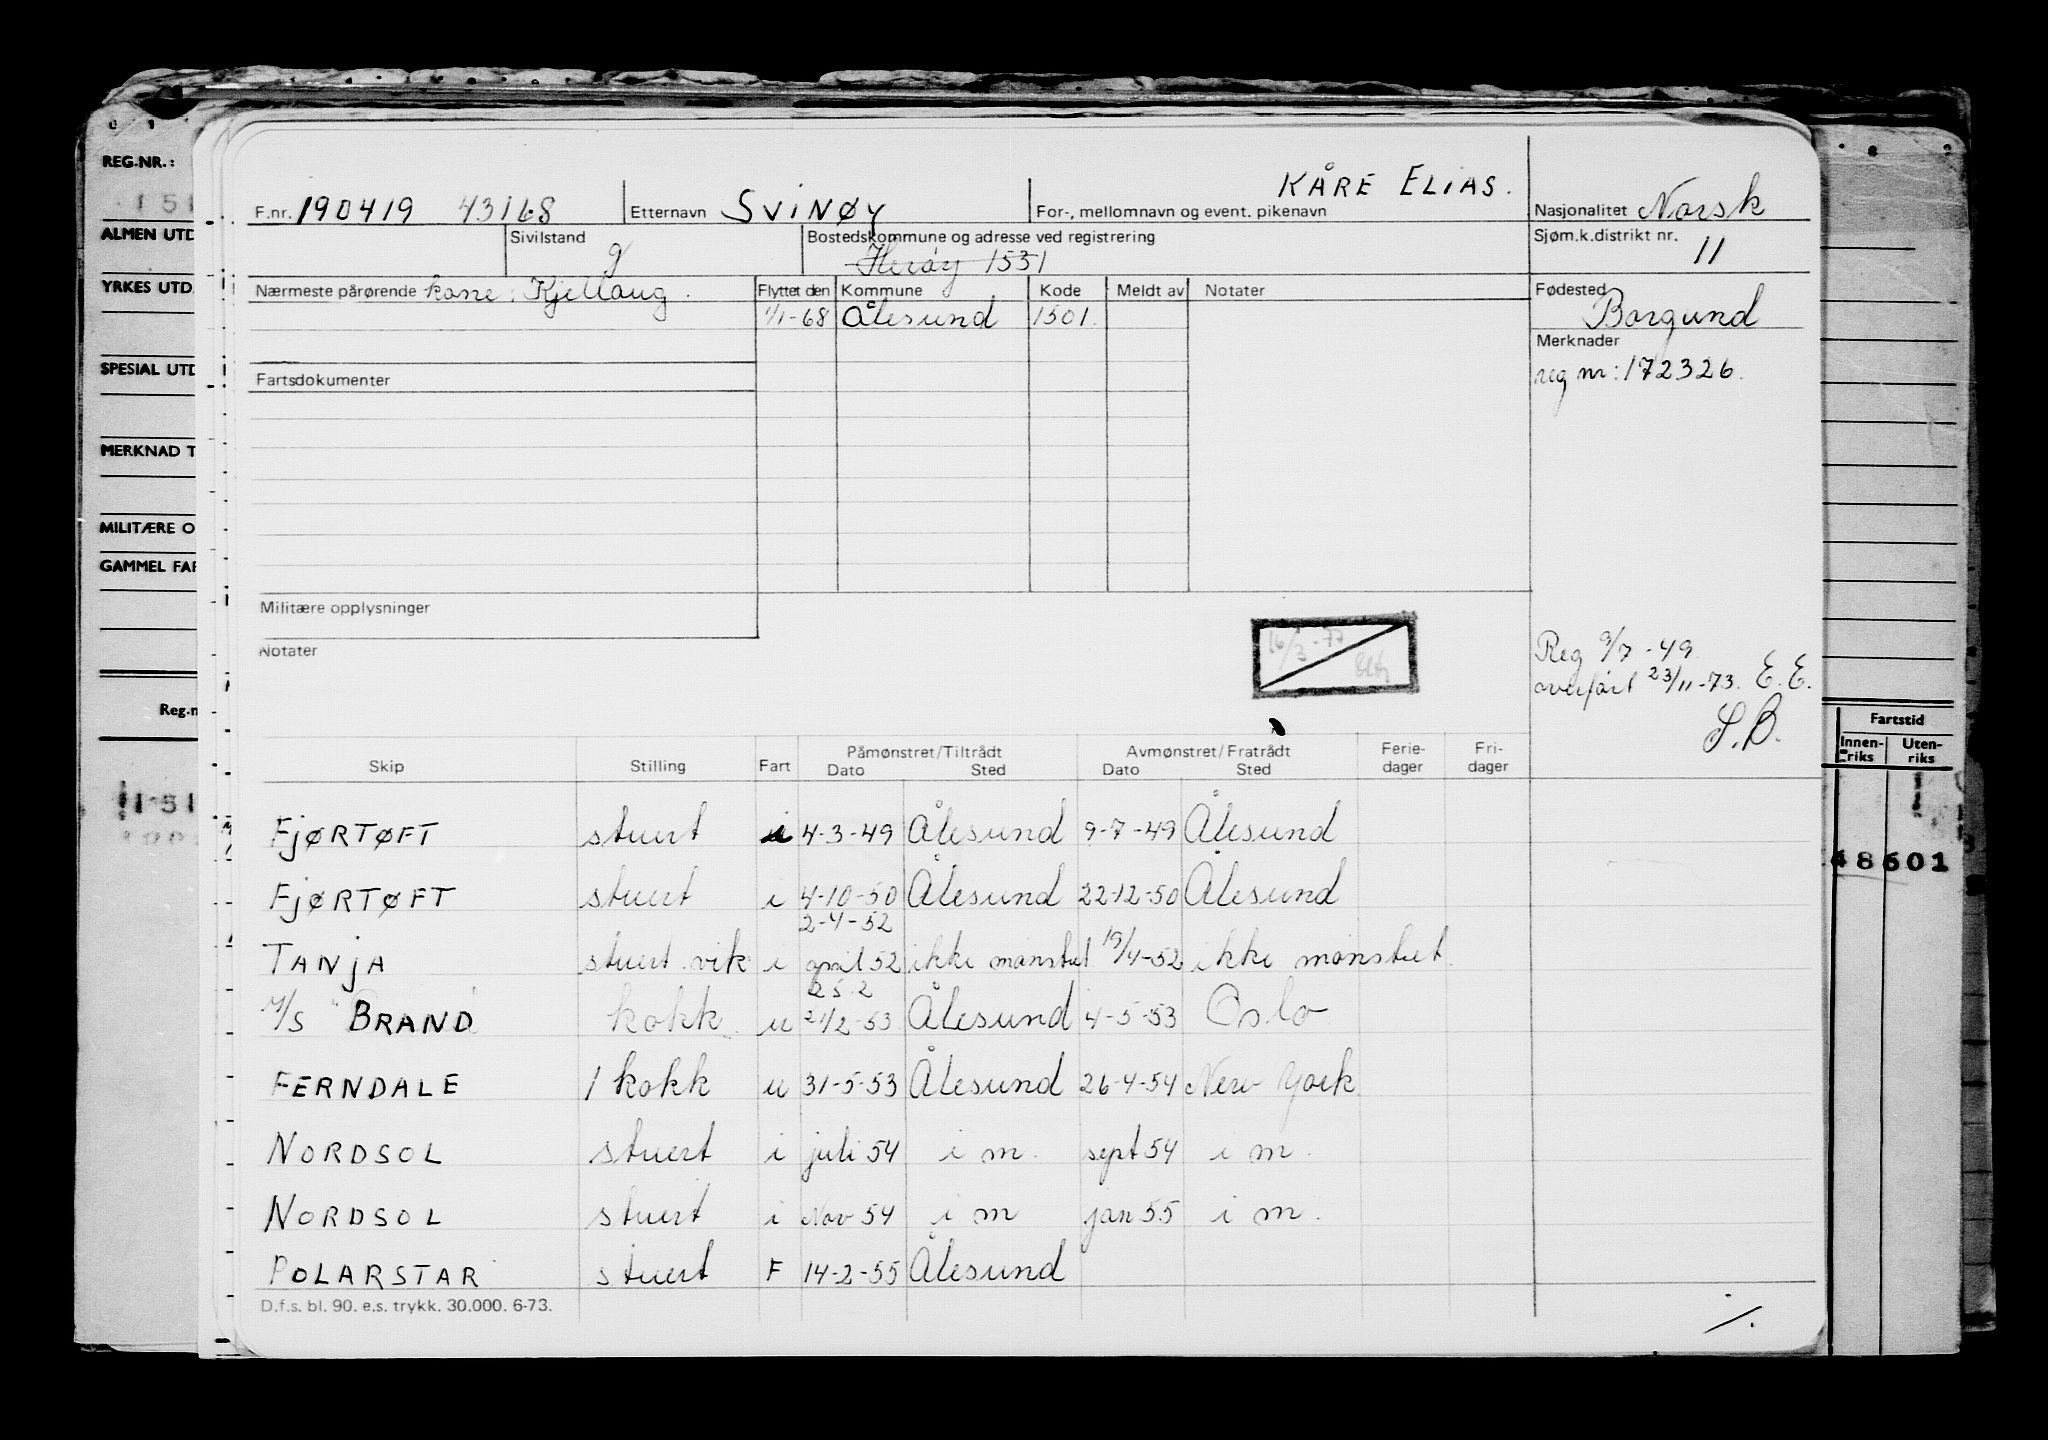 REG.NR.:
ALMEN UTD
YRKES UTD.
SPESIAL UTD
MERKNAD T
MILITÆRE O
GAMMEL FAR
Reg.n
F.nr. 190419 43168 Etternavn SVINØY For-, mellomnavn og event. pikenavn KÅRE ELIAS. Nasjonalitet Norsk
Sivilstand g Bostedskommune og adresse ved registrering Herøy 1531 Sjøm.k.distrikt nr. 11
Nærmeste pårørende kone: Kjellaug. Flyttet den Kommune Kode Meldt av Notater Fødested Borgund
1/1-68 Ålesund 1501.
Merknader
reg nr: 172326.
Fartsdokumenter
Militære opplysninger
Notater
16/3-77
Reg 9/7-49.
overført 23/11-73. E.E.
S.B.
Skip Stilling Fart Påmønstret/Tiltrådt Avmønstret/Fratrådt Ferie-dager Fri-dager
Dato Sted Dato Sted
FJØRTØFT stuert i 4-3-49 Ålesund 9-7-49 Ålesund
FJØRTØFT stuert i 4-10-50 Ålesund 22-12-50 Ålesund
2-4-52
TANJA stuert vik i april 52 ikke mønstret 19/4-52 ikke mønstret.
25.2
M/S "BRAND" kokk u 21/2-53 Ålesund 4-5-53 Oslo
FERNDALE 1 kokk u 31-5-53 Ålesund 26-4-54 New York
NORDSOL stuert i juli 54 i m. sept 54 i m.
NORDSOL stuert i Nov 54 i m jan 55 i m.
POLARSTAR stuert F 14-2-55 Ålesund
D.f.s. bl. 90. e.s. trykk. 30.000. 6-73.
Fartstid
Innen-riks Uten-riks
48601